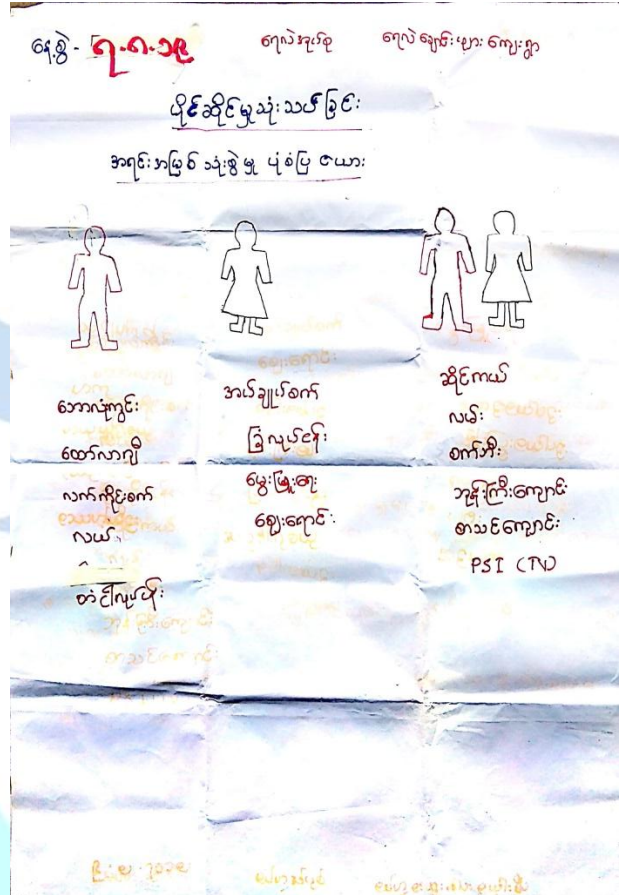 နေ့စွဲ - ၅-၈-၁၉ ရေလဲအုပ်စု ရေလဲချောင်းဖျား ကျေးရွာ
ပိုင်ဆိုင်မှုသုံးသပ်ခြင်း
အရင်းအမြစ် သုံးစွဲမှု ပုံစံပြ ဇယား
ဘောလုံးကွင်း
ထော်လာဂျီ
လက်ကိုင်းစက်
လယ်
တံငါလုပ်ငန်း
အပ်ချုပ်စက်
ခြံလုပ်ငန်း
မွေးမြူရေး
ဈေးရောင်း
ဆိုင်ကယ်
လမ်း
စက်ဘီး
ဘုန်းကြီးကျောင်း
စာသင်ကျောင်း
PSI (TV)